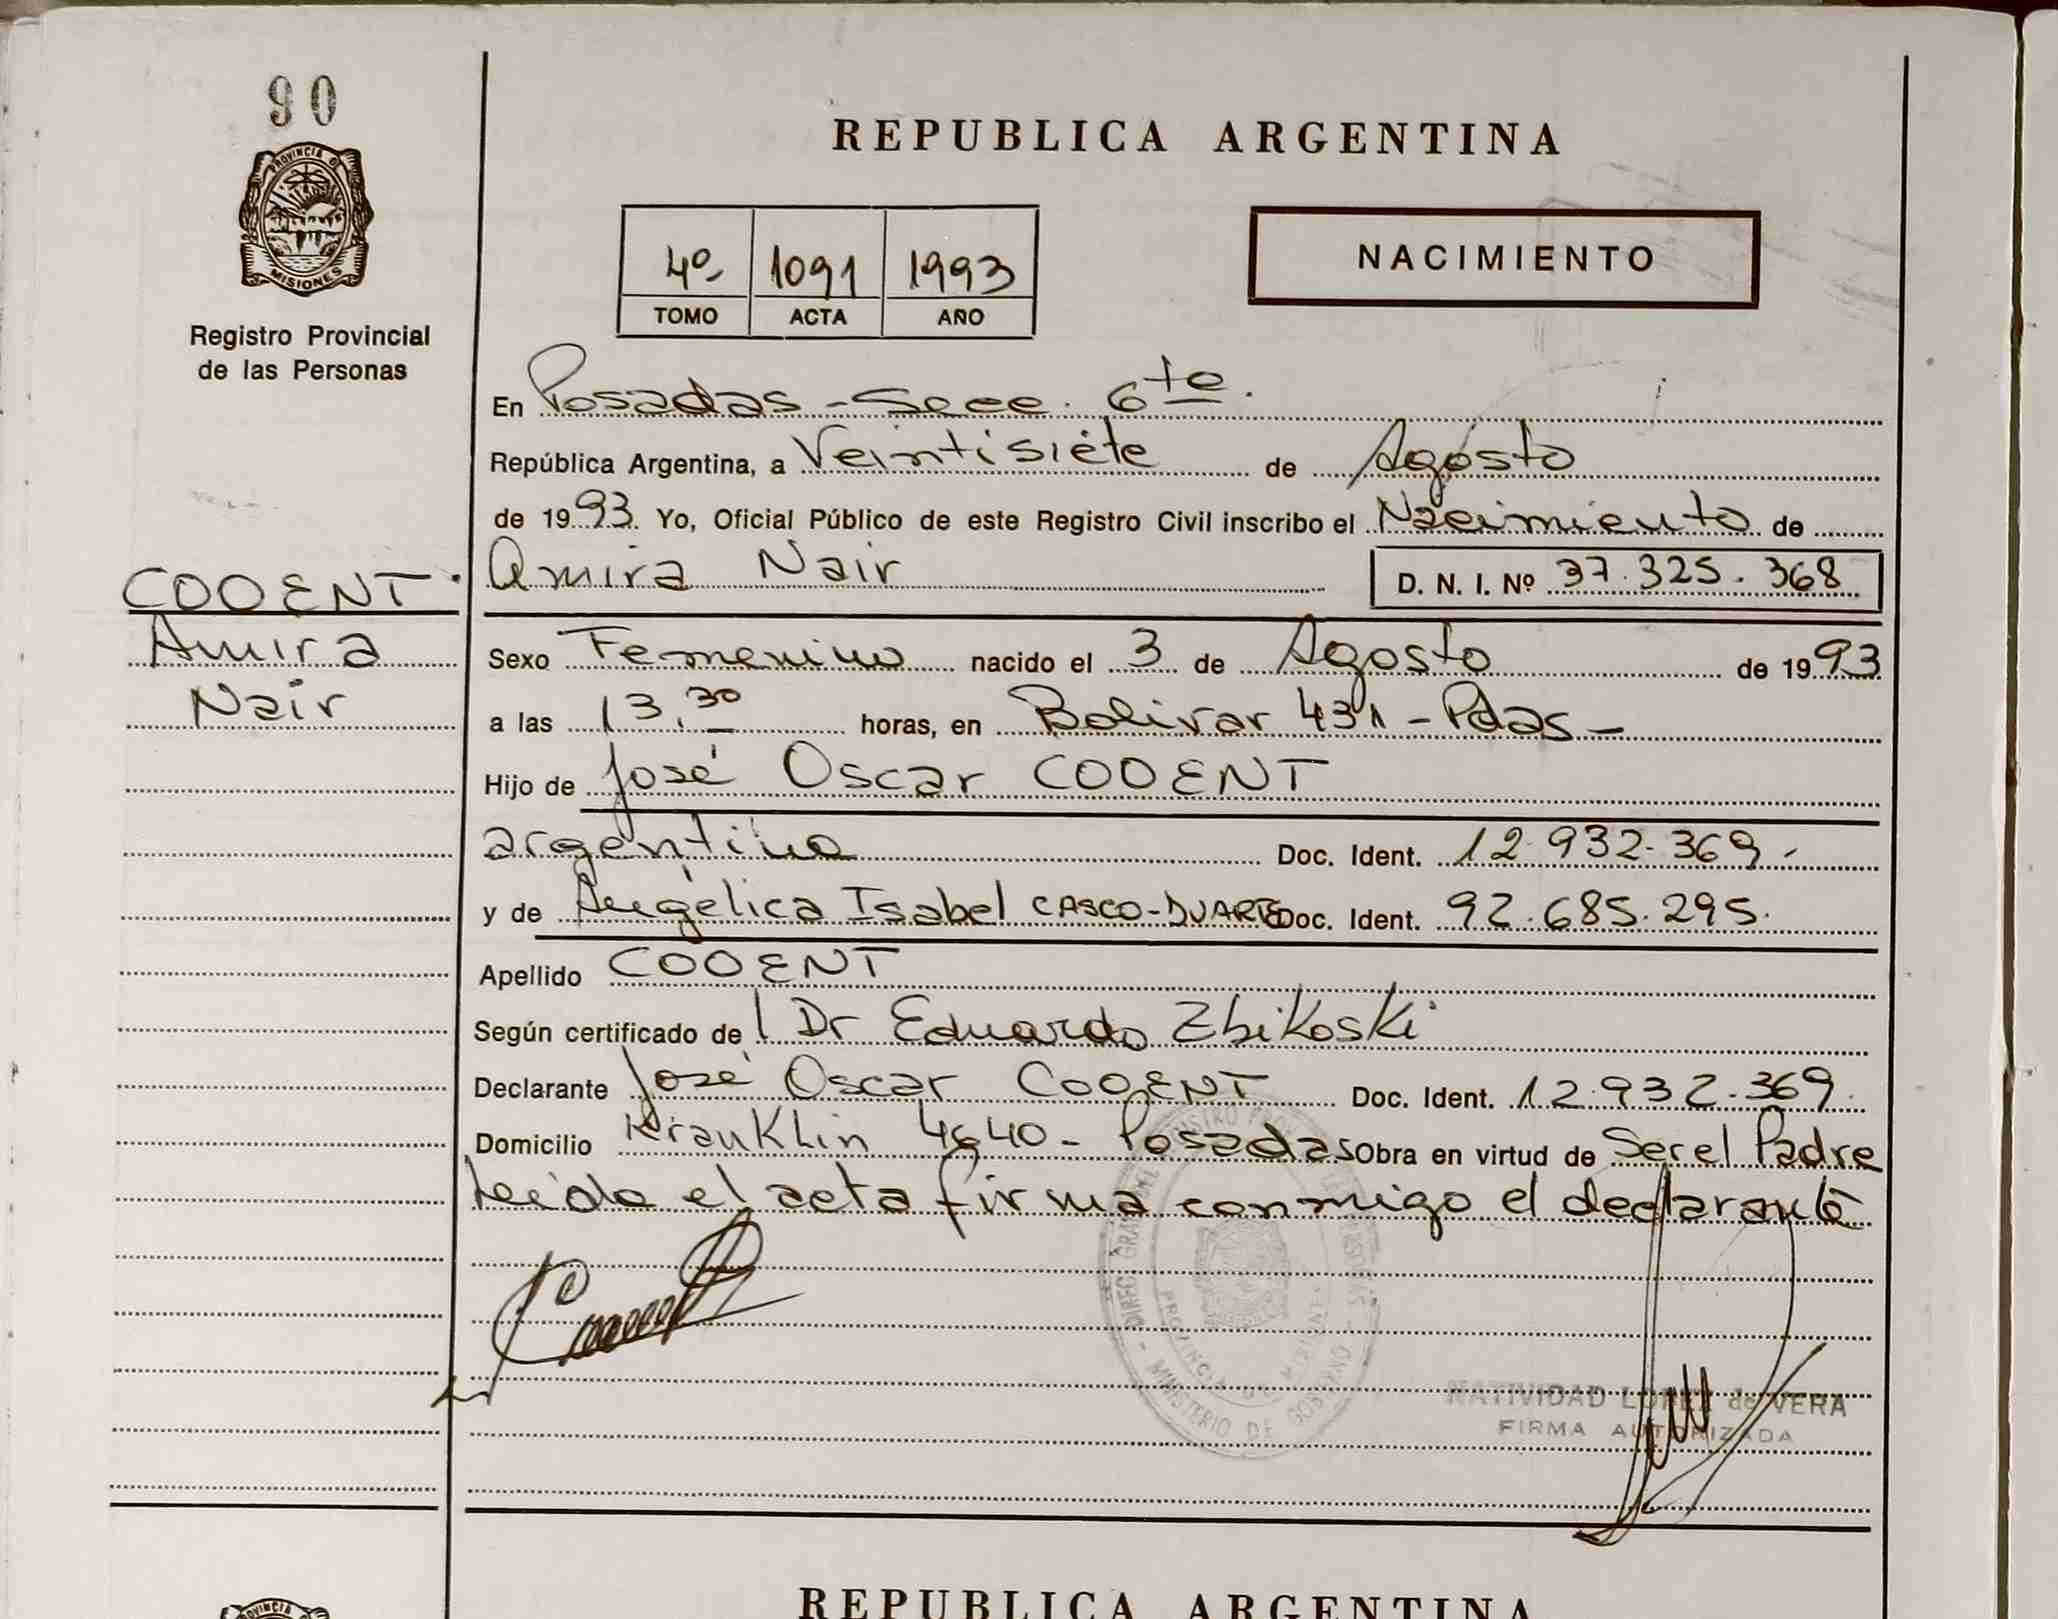 90
PROVINCIA DE
MISIONES
Registro Provincial
de las Personas
REPUBLICA ARGENTINA
4º 1091 1993
TOMO ACTA AÑO
NACIMIENTO
En Posadas - Secc. 6ta.
República Argentina, a Veintisiete de Agosto
de 1993. Yo, Oficial Público de este Registro Civil inscribo el Nacimiento de
Amira Nair D. N. I. Nº 37.325.368
COOENT
Amira
Nair
Sexo Femenino nacido el 3 de Agosto de 1993
a las 13,30 horas, en Bolivar 431 - Pdas -
Hijo de José Oscar COOENT
argentino Doc. Ident. 12.932.369.
y de Angélica Isabel CASCO-DUARTE Doc. Ident. 92.685.295.
Apellido COOENT
Según certificado de l Dr Eduardo Zbikoski
Declarante José Oscar COOENT Doc. Ident. 12.932.369.
Domicilio 4640 - Posadas Obra en virtud de Ser el Padre
leida el acta firma conmigo el declarante
MINISTERIO DE GOBIERNO
NATIVIDAD LOPEZ de VERA
FIRMA AUTORIZADA
REPUBLICA ARGENTINA